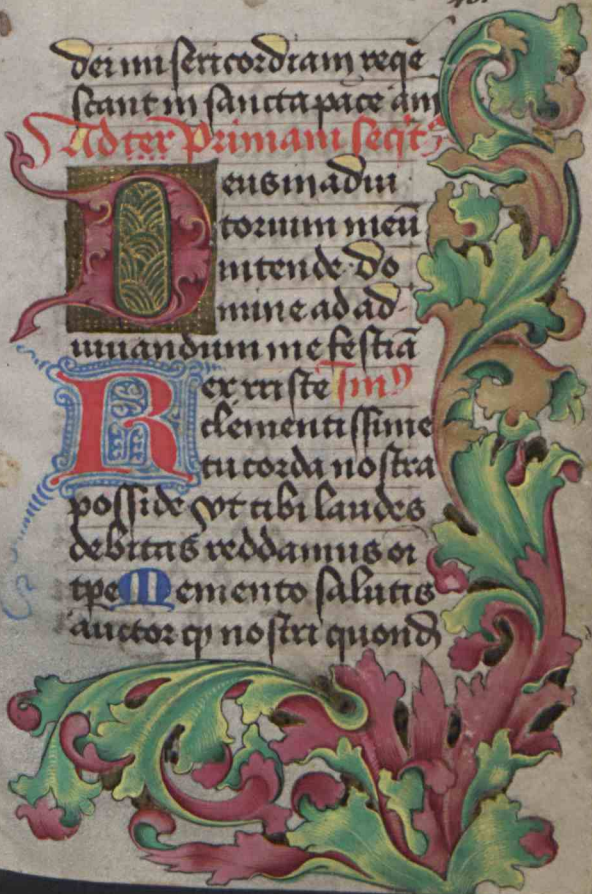 dei misericordiam reqͥe
scant in sancta pace am̄
Ad ter Primam
Deus in adiu
torium meū
intende Do
mine ad ad
iuuandum me festiā
Rex xpiste Im⁹
clementissime
tu corda nostra
posside vt tibi laudes
debitas reddamus oī
tpe Memento salutis
auctor ꝙ nostri quondā